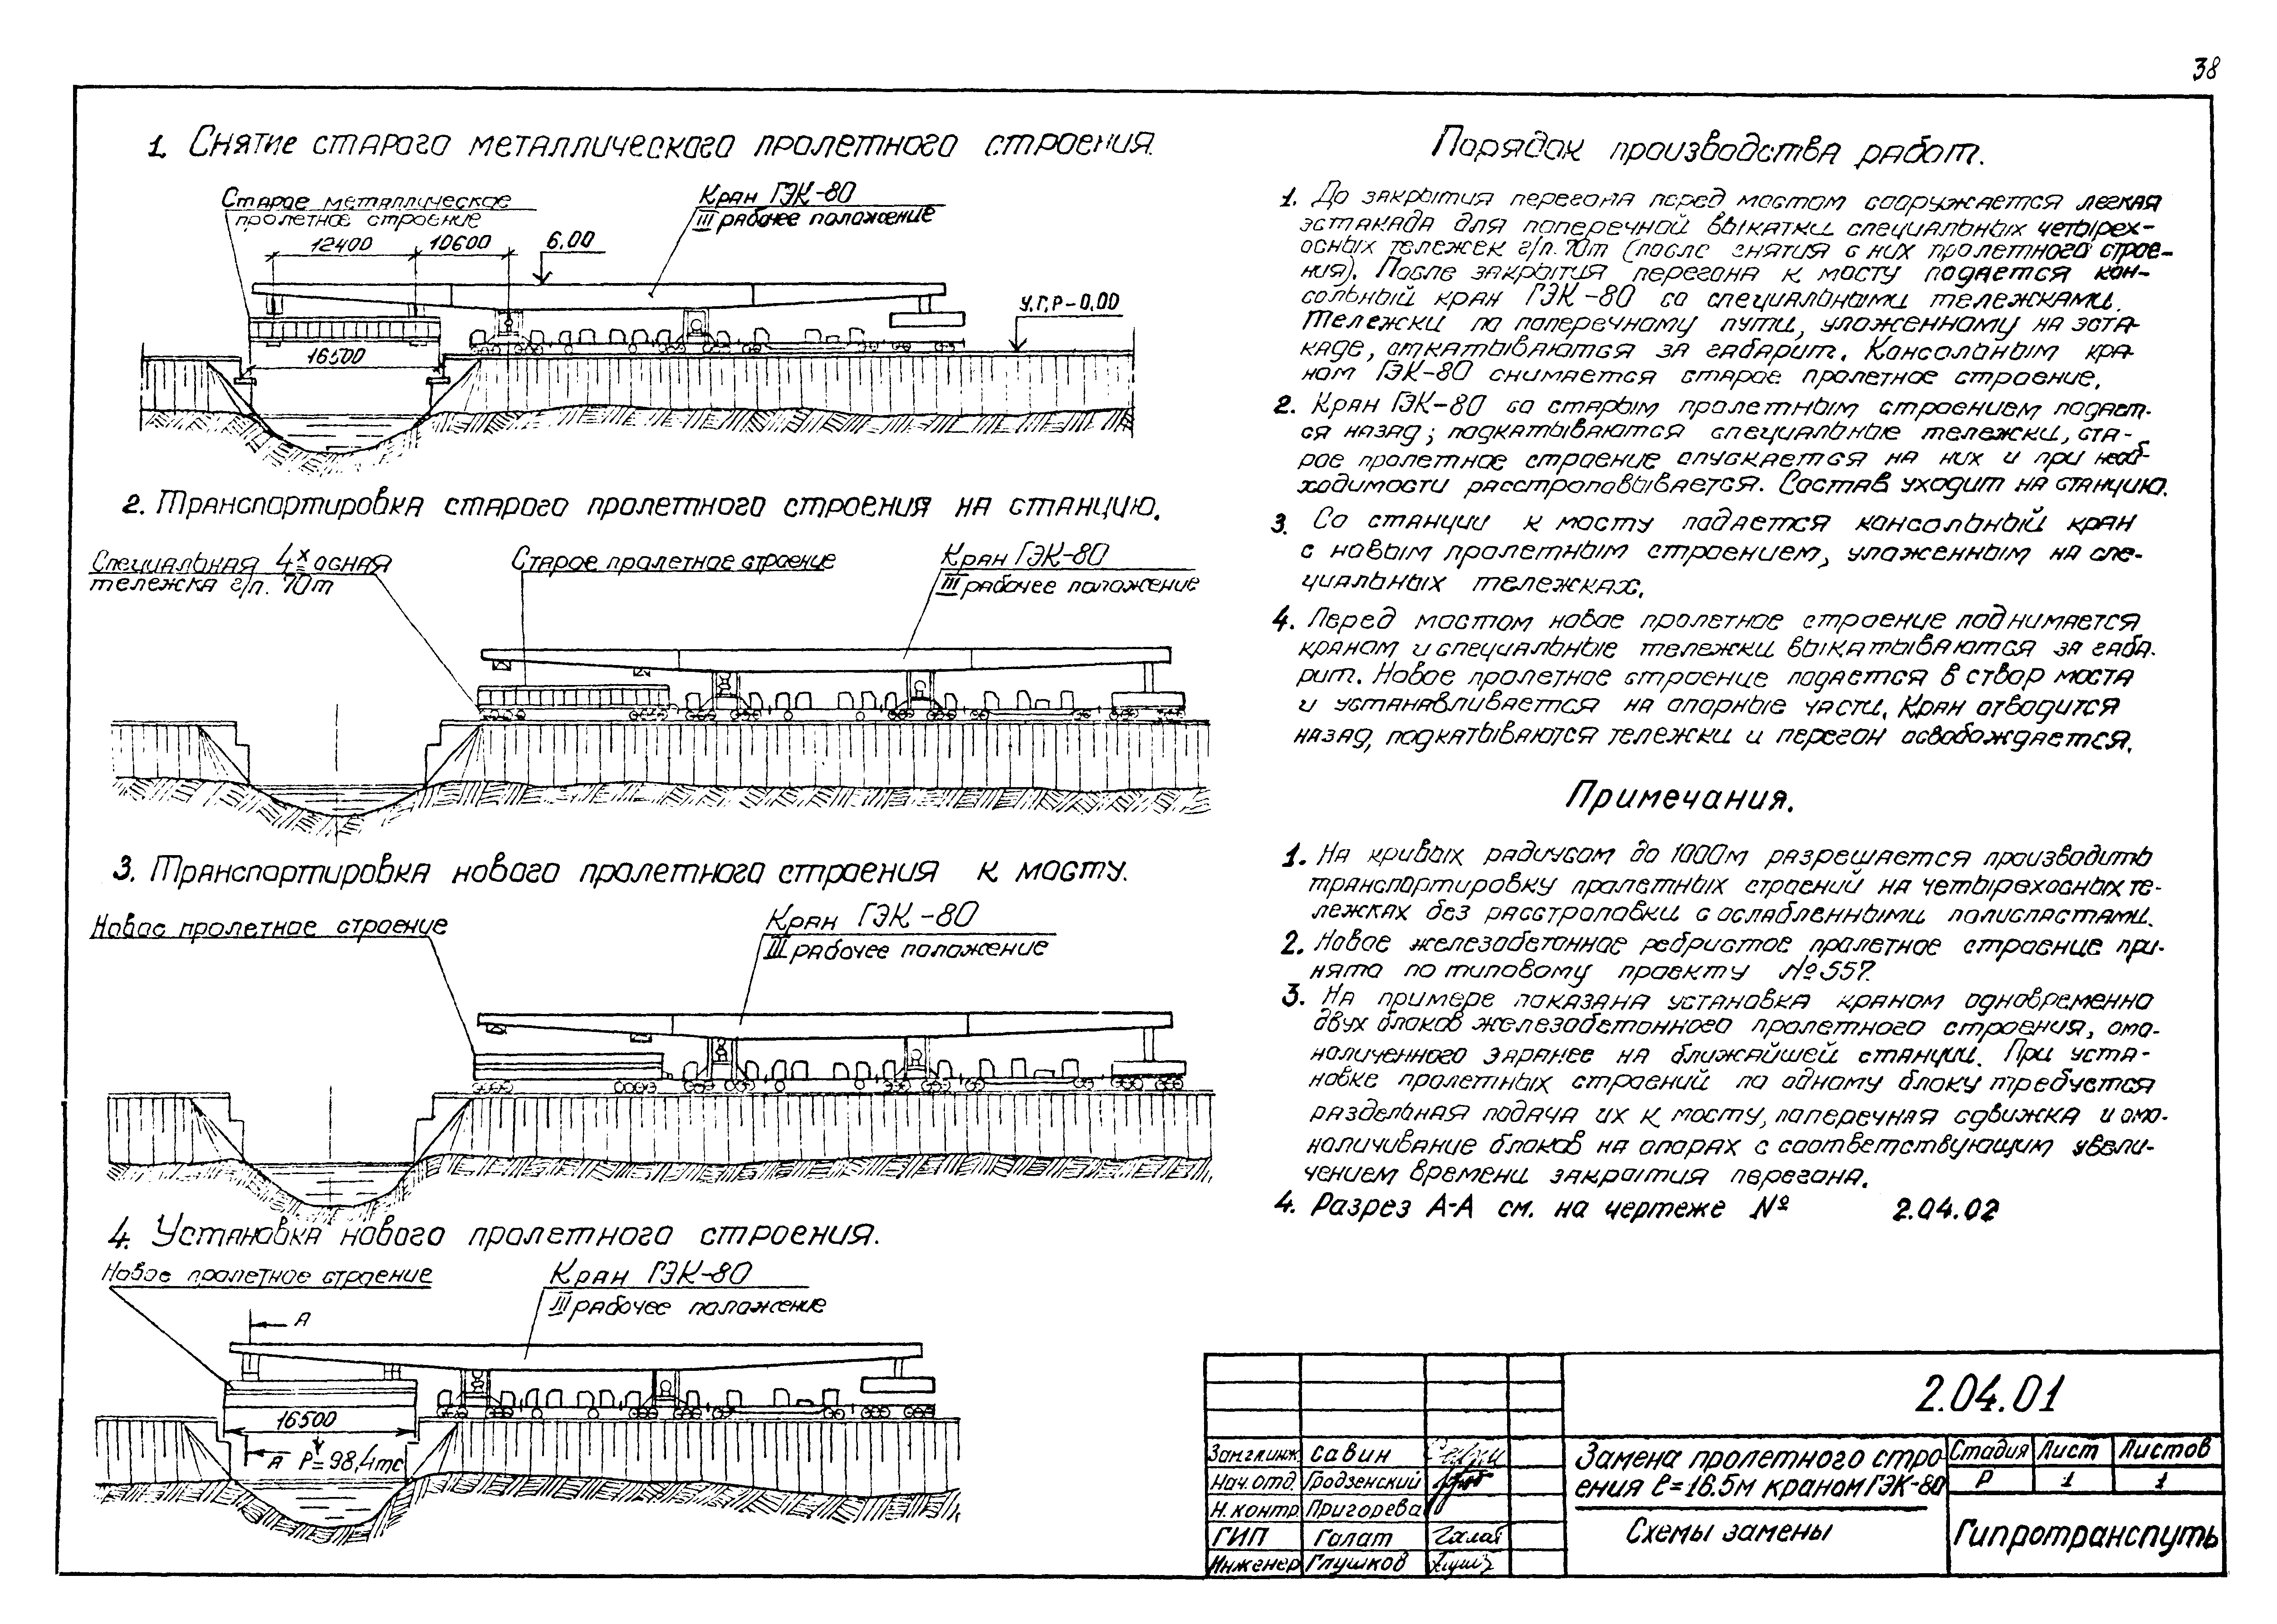 38
1. Снятие старого металлического пролетного строения.
Старое металлическое
пролетное строение
Кран ГЭК-80
III рабочее положение
12400
10600
6,00
У.Г.Р-0.00
16500
2. Транспортировка старого пролетного строения на станцию.
Специальная 4х осная
тележка г/п. 70т
Старое пролетное строение
Кран ГЭК-80
III рабочее положение
3. Транспортировка нового пролетного строения к мосту.
Новое пролетное строение
Кран ГЭК-80
III рабочее положение
4. Установка нового пролетного строения.
Новое пролетное строение
Кран ГЭК-80
III рабочее положение
А
16500
А Р=98,4тс
Порядок производства работ.
1. До закрытия перегона перед мостом сооружается легкая
эстакада для поперечной выкатки специальных четырех-
осных тележек г/п. 70т (после снятия с них пролетного строе-
ния). После закрытия перегона к мосту подается кон-
сольный кран ГЭК-80 со специальными тележками.
Тележки по поперечному пути, уложенному на эста-
каде, откатываются за габарит. Консольным кра-
ном ГЭК-80 снимается старое пролетное строение.
2. Кран ГЭК-80 со старым пролетным строением подает-
ся назад; подкатываются специальные тележки, ста-
рое пролетное строение опускается на них и при необ-
ходимости расстроповывается. Состав уходит на станцию.
3. Со станции к мосту подается консольный кран
с новым пролетным строением, уложенным на спе-
циальных тележках.
4. Перед мостом новое пролетное строение поднимается
краном и специальные тележки выкатываются за габа-
рит. Новое пролетное строение подается в створ моста
и устанавливается на опорные части. Кран отводится
назад, подкатываются тележки и перегон освобождается.
Примечания.
1. На кривых радиусом до 1000м разрешается производить
транспортировку пролетных строений на четырехосных те-
лежках без расстроповки с ослабленными полиспастами.
2. Новое железобетонное ребристое пролетное строение при-
нято по типовому проекту №557.
3. На примере показана установка краном одновременно
двух блоков железобетонного пролетного строения, омо-
ноличенного заранее на ближайшей станции. При уста-
новке пролетных строений по одному блоку требуется
раздельная подача их к мосту, поперечная сдвижка и омо-
ноличивание блоков на опорах с соответствующим увели-
чением времени закрытия перегона.
4. Разрез А-А см. на чертеже № 2.04.02
2.04.01
Зам.гл.инж. Савин
Нач. отд. Гродзенский
Н. контр. Пригорева
ГИП Галат
Инженер Глушков
Замена пролетного стро
ения ℓ=16.5м краном ГЭК-80
Схемы замены
Стадия Лист Листов
Р 1 1
Гипротранспуть